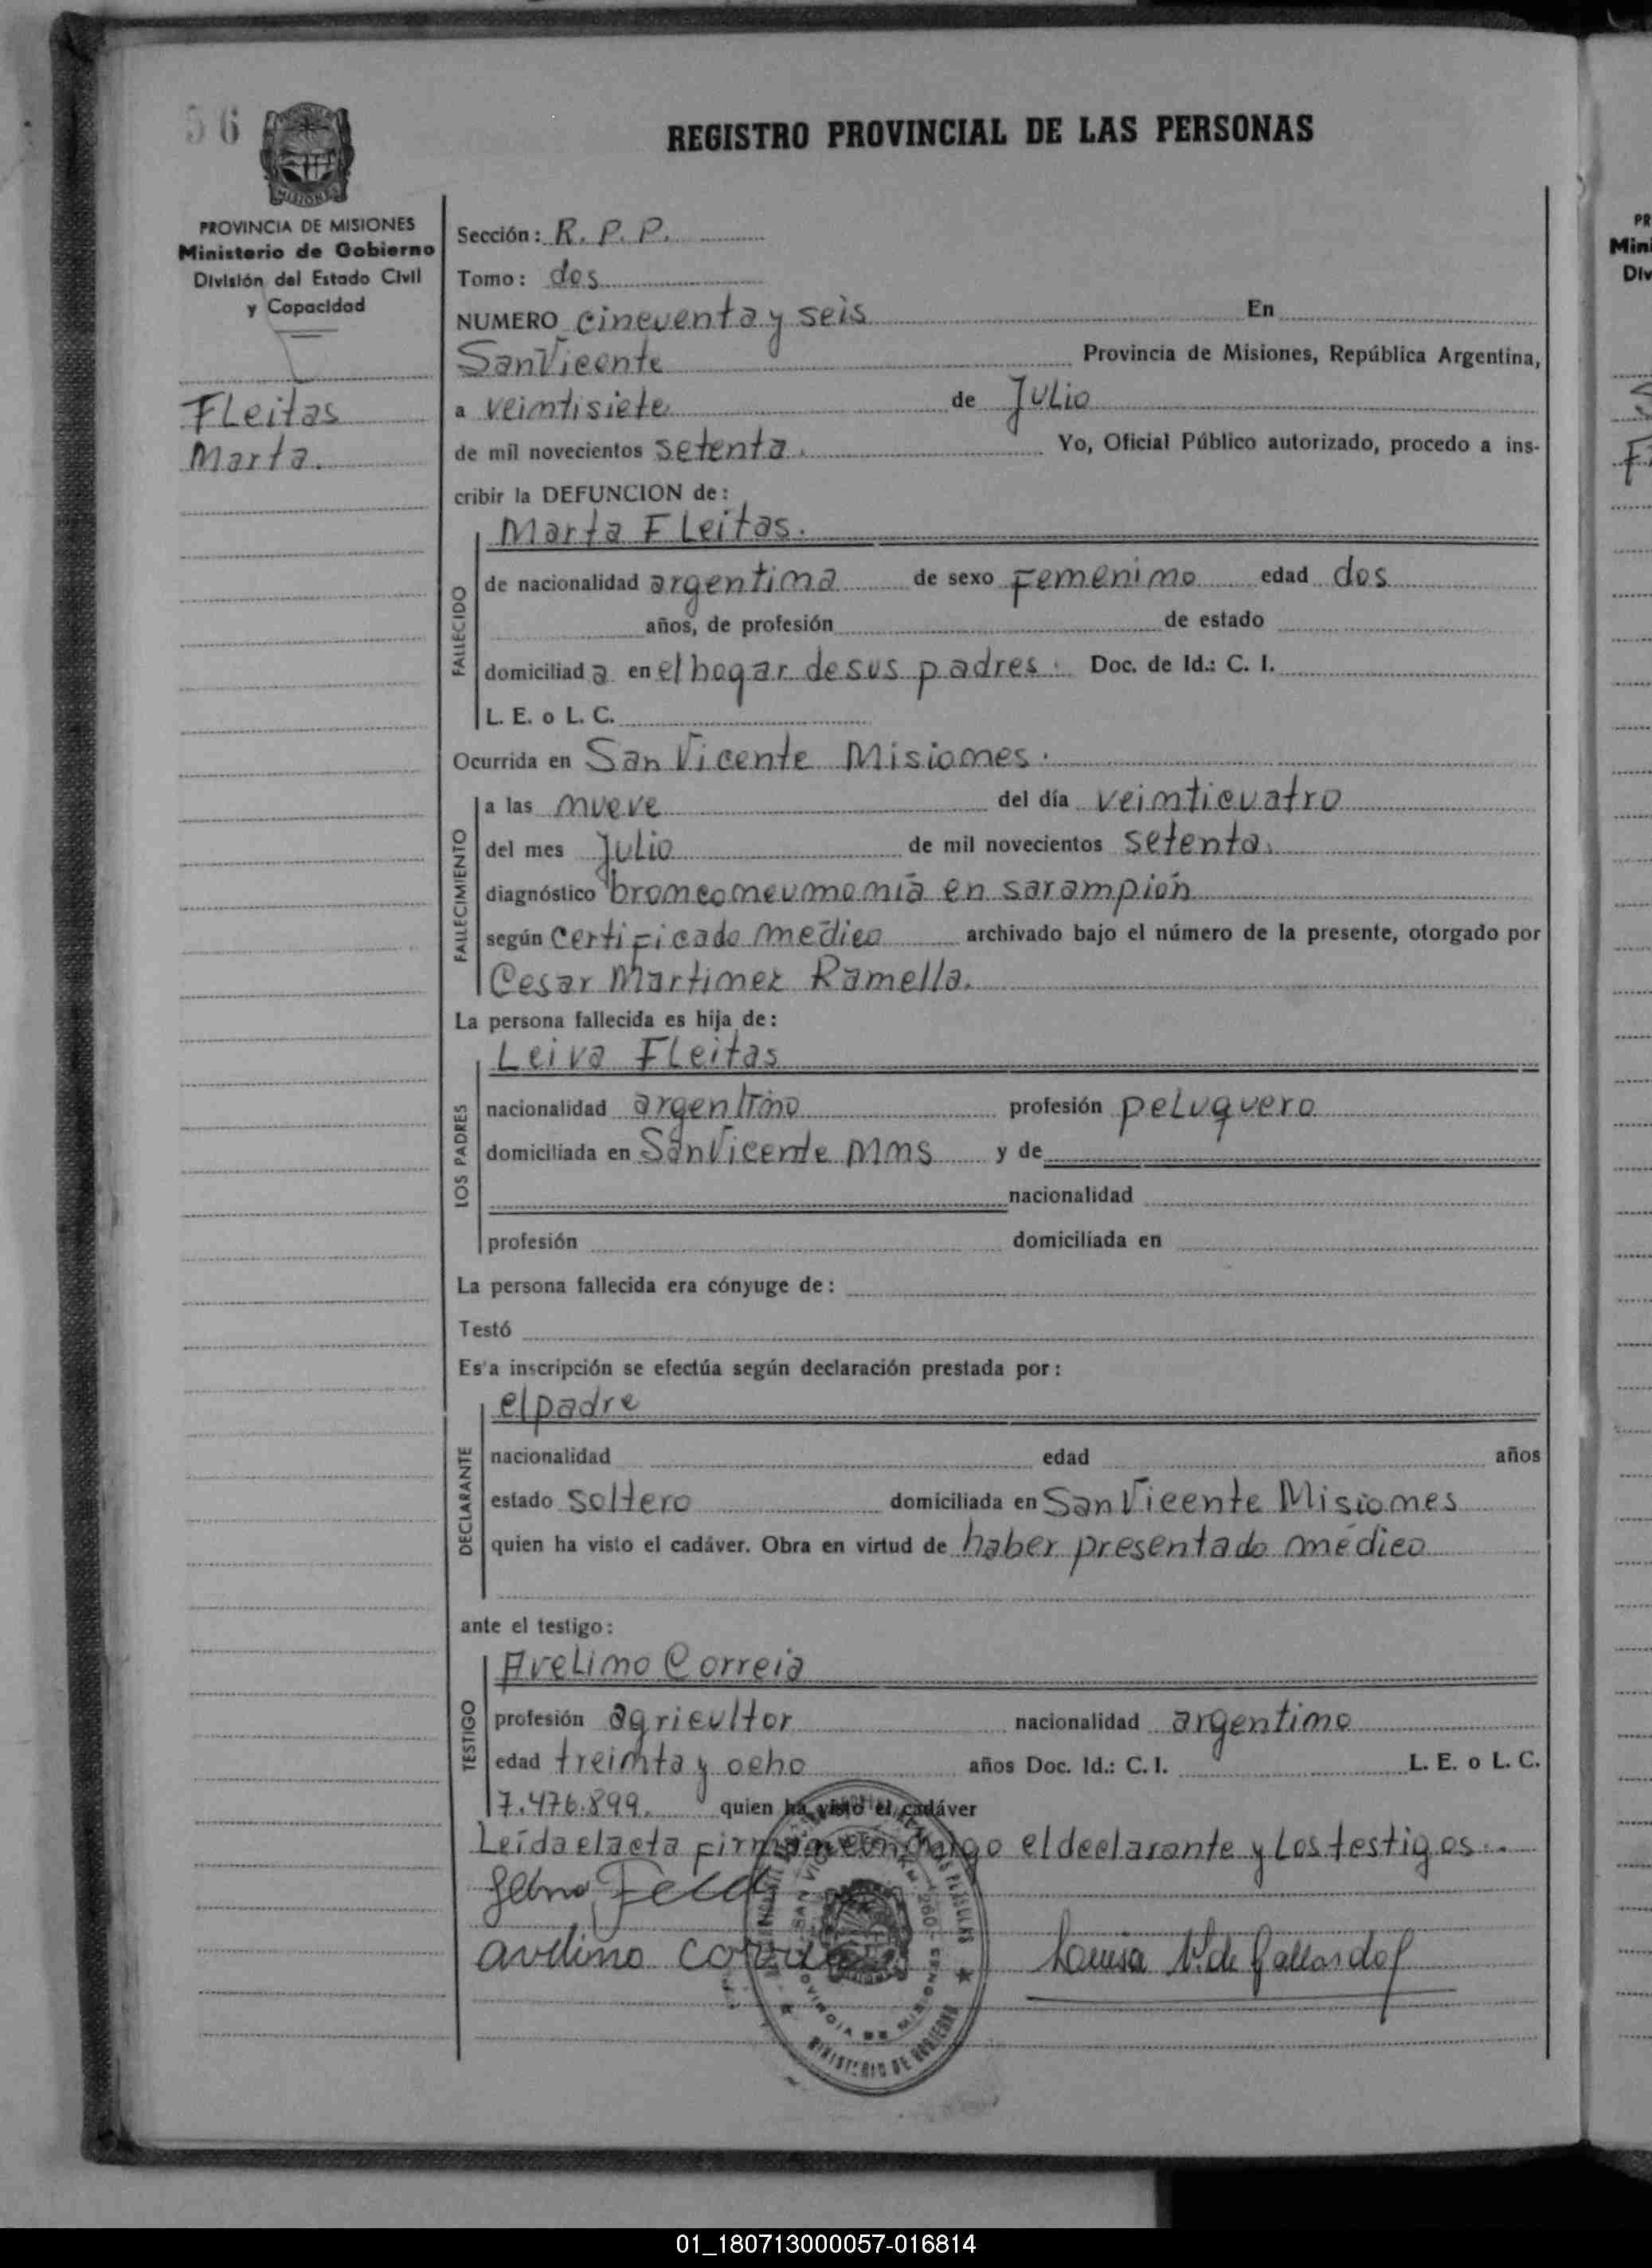 56
REGISTRO PROVINCIAL DE LAS PERSONAS
PROVINCIA DE MISIONES
Ministerio de Gobierno
División del Estado Civil
y Capacidad
FLeitas
Marta.
Sección: R. P. P.
Tomo: dos
NUMERO cincuenta y seis En
San Vicente Provincia de Misiones, República Argentina,
a veintisiete de Julio
de mil novecientos setenta. Yo, Oficial Público autorizado, procedo a ins-
cribir la DEFUNCION de:
Marta FLeitas.
FALLECIDO
de nacionalidad argentina de sexo Femenino edad dos
años, de profesión de estado
domiciliad a en el hogar de sus padres. Doc. de Id.: C. I.
L. E. o L. C.
Ocurrida en San Vicente Misiones.
FALLECIMIENTO
a las nueve del día veinticuatro
del mes Julio de mil novecientos setenta.
diagnóstico bronconeumonia en sarampión
según certificado médico archivado bajo el número de la presente, otorgado por
Cesar Martinez Ramella.
La persona fallecida es hija de:
Leiva FLeitas
LOS PADRES
nacionalidad argentino profesión peluquero
domiciliada en San Vicente Mnes y de
nacionalidad
profesión domiciliada en
La persona fallecida era cónyuge de:
Testó
Es'a inscripción se efectúa según declaración prestada por:
el padre
DECLARANTE
nacionalidad edad años
estado soltero domiciliada en San Vicente Misiones
quien ha visto el cadáver. Obra en virtud de haber presentado médico
ante el testigo:
Avelino Correia
TESTIGO
profesión agricultor nacionalidad argentino
edad treinta y ocho años Doc. Id.: C. I. L. E. o L. C.
7.476.899. quien ha visto el cadáver
Leída el acta firman conmigo el declarante y Los testigos.
avelino
Louisa V. de Gallardo
SAN VICENTE
PROVINCIA DE MISIONES
MINISTERIO DE GOBIERNO
01_180713000057-016814